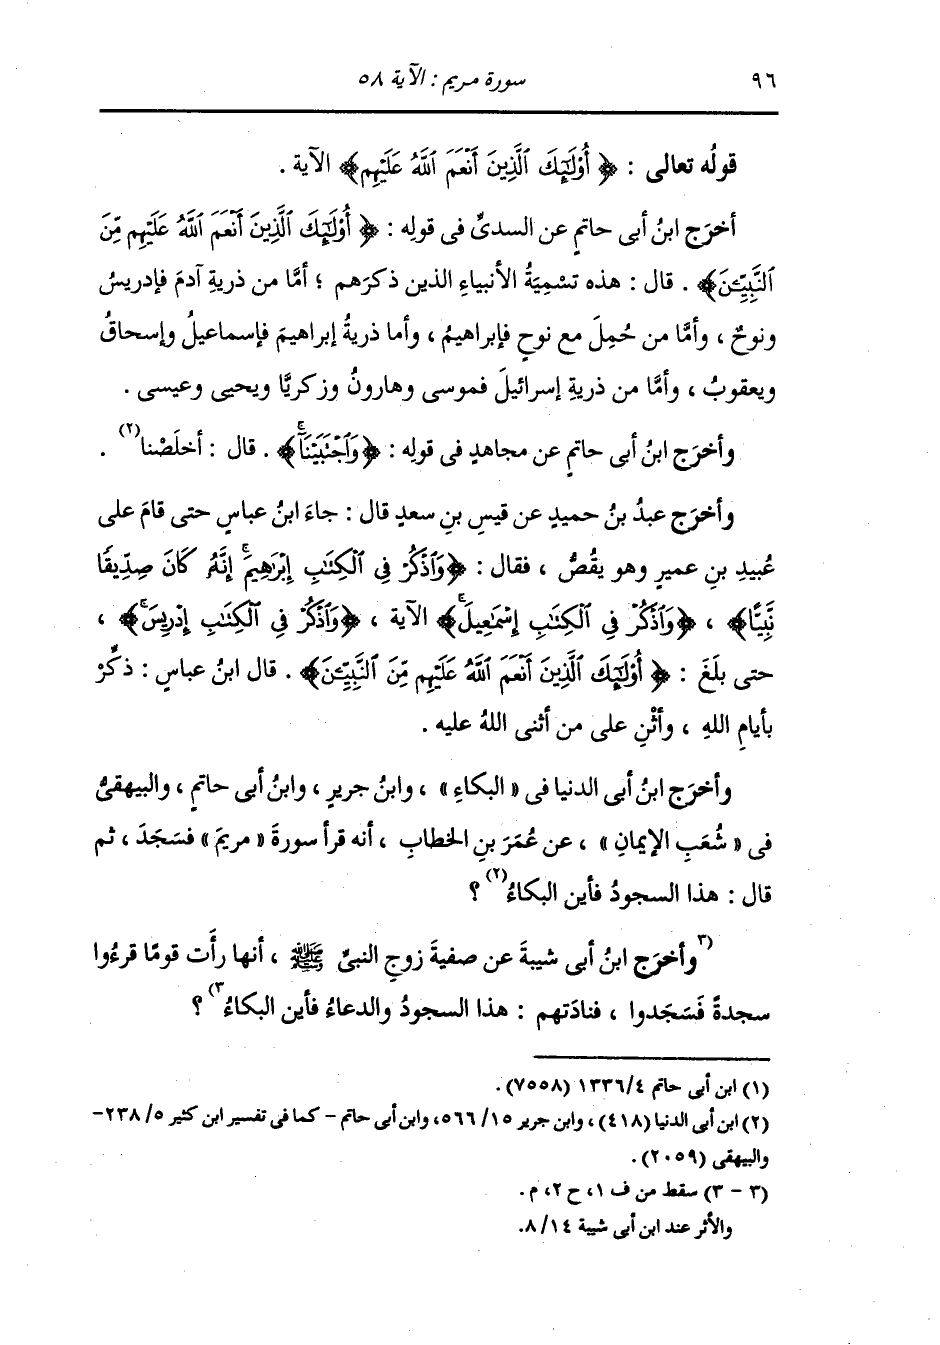 ٩٦ سورة مريم : الآية ٥٨
قولُه تعالى : ﴿ أُوْلَٰٓئِكَ ٱلَّذِينَ أَنْعَمَ ٱللَّهُ عَلَيْهِم﴾ الآية .
أخرَج ابنُ أبى حاتمٍ عن السدىِّ فى قولِه : ﴿ أُوْلَٰٓئِكَ ٱلَّذِينَ أَنْعَمَ ٱللَّهُ عَلَيْهِم مِّنَ
ٱلنَّبِيِّـۧنَ﴾ . قال : هذه تسْمِيَةُ الأنبياءِ الذين ذكرَهم ؛ أمَّا من ذريةِ آدمَ فإدريسُ
ونوحٌ ، وأمَّا من حُمِلَ مع نوحٍ فإبراهيمُ ، وأما ذريةُ إبراهيمَ فإسماعيلُ وإسحاقُ
ويعقوبُ ، وأمَّا من ذريةِ إسرائيلَ فموسى وهارونُ وزكريَّا ويحيى وعيسى .
وأخرَج ابنُ أبى حاتمٍ عن مجاهدٍ فى قولِه : ﴿وَٱجْتَبَيْنَآۚ﴾ . قال : أخلَصْنا(٢) .
وأخرَج عبدُ بنُ حميدٍ عن قيسِ بنِ سعدٍ قال : جاءَ ابنُ عباسٍ حتى قامَ على
عُبيدِ بنِ عميرٍ وهو يقُصُّ ، فقال : ﴿وَٱذْكُرْ فِى ٱلْكِتَٰبِ إِبْرَٰهِيمَۚ إِنَّهُۥ كَانَ صِدِّيقًا
نَّبِيًّا﴾ ، ﴿وَٱذْكُرْ فِى ٱلْكِتَٰبِ إِسْمَٰعِيلَۚ﴾ الآية ، ﴿وَٱذْكُرْ فِى ٱلْكِتَٰبِ إِدْرِيسَۚ﴾ ،
حتى بلَغَ : ﴿ أُوْلَٰٓئِكَ ٱلَّذِينَ أَنْعَمَ ٱللَّهُ عَلَيْهِم مِّنَ ٱلنَّبِيِّـۧنَ﴾ . قال ابنُ عباسٍ : ذكِّرْ
بأيامِ اللهِ ، وأثْنِ على من أثنى اللهُ عليه .
وأخرَج ابنُ أبى الدنيا فى « البكاءِ » ، وابنُ جريرٍ ، وابنُ أبى حاتمٍ ، والبيهقىُّ
فى « شُعَبِ الإيمانِ » ، عن عُمَرَ بنِ الخطابِ ، أنه قرأ سورةَ « مريمَ » فسَجَدَ ، ثم
قال : هذا السجودُ فأين البكاءُ(٢) ؟
(٣وأخرَج ابنُ أبى شيبةَ عن صفيةَ زوجِ النبىِّ ﷺ ، أنها رأَت قومًا قرءُوا
سجدةً فَسَجَدوا ، فنادَتهم : هذا السجودُ والدعاءُ فأين البكاءُ٣) ؟
(١) ابن أبى حاتم ١٣٣٦/٤ (٧٥٥٨) .
(٢) ابن أبى الدنيا (٤١٨) ، وابن جرير ٥٦٦/١٥ ، وابن أبى حاتم – كما فى تفسير ابن كثير ٢٣٨/٥ –
والبيهقى (٢٠٥٩) .
(٣ – ٣) سقط من ف ١ ، ح ٢ ، م .
والأثر عند ابن أبى شيبة ٨/١٤ .